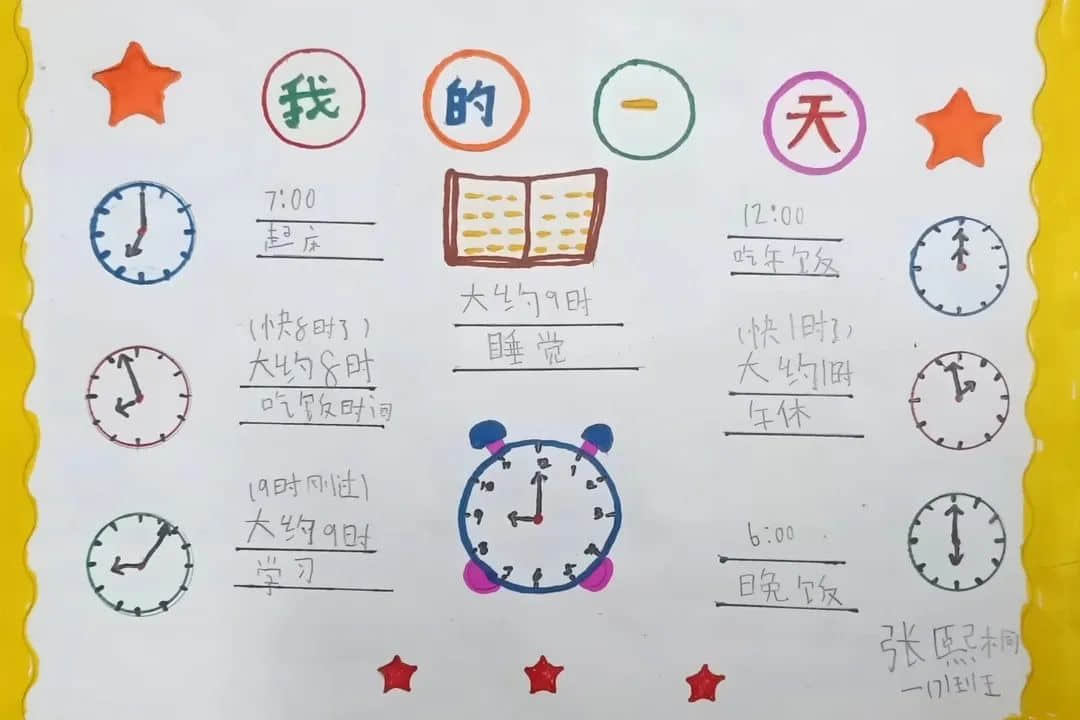 我的一天
7:00
起床
(快8时了)
大约8时
吃饭时间
(9时刚过)
大约9时
学习
大约9时
睡觉
12
11 1
10 2
9 3
8 4
7 6 5
12:00
吃午饭
(快1时了)
大约1时
午休
6:00
晚饭
张熙桐